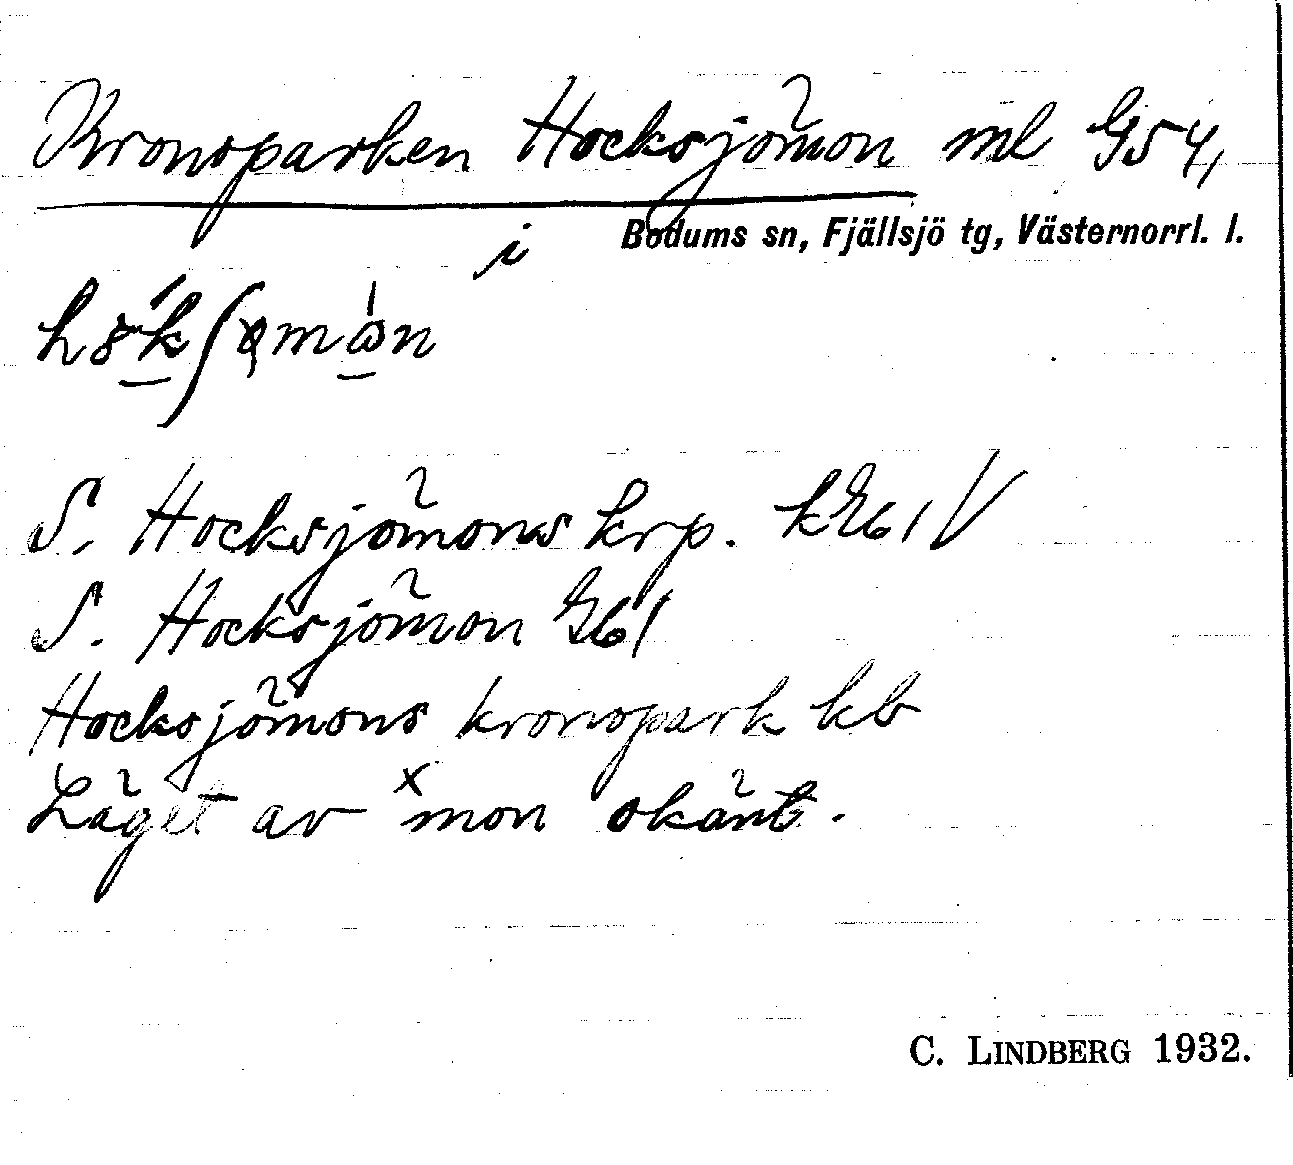 Kronoparken Hocksjömon ml G54,
i Bodums sn, Fjällsjö tg, Västernorrl. l.
S. Hocksjömons krp. kG61V
S. Hocksjömon G61
Hocksjömons kronopark kb
Läget av xmon okänt.
C. LINDBERG 1932.